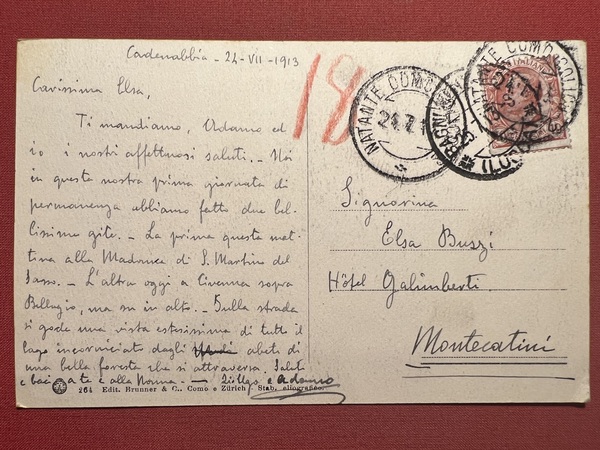 Cadenabbia - 24-VII-1913
Carissima Elsa,
Ti mandiamo, Adamo ed
io i nostri affettuosi saluti. - Noi
in questa nostra prima giornata di
permanenza abbiamo fatto due bel-
lissime gite. - La prima questa mat-
tina alla Madonna di S. Martino del
Sasso. - L'altra oggi a Civenna sopra
Bellagio, ma su in alto. - Sulla strada
si gode una vista estesissima di tutto il
lago incorniciato dagli abeti di
una bella foresta che si attraversa. Saluti
e baci a te e alla Nonna. - e Adamo
264 Edit. Brunner & C., Como e Zürich Stab. eliografico.
18
NATANTE COMO
24.7.1
NATANTE COMO COLICO
Signorina
Elsa Buszi
Hôtel Galimberti.
Montecatini